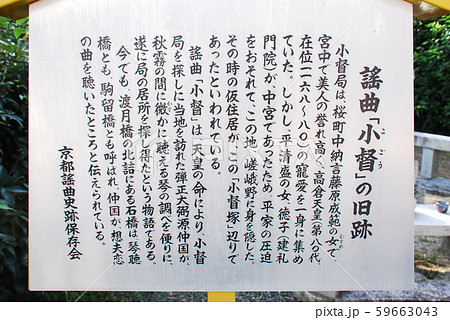 謡曲「小督」の旧跡
こごう
小督局は、桜町中納言藤原成範の女で、
しげのり
宮中で美人の誉れ高く、高倉天皇(第八〇代、
在位一一六八〜八〇)の寵愛を一身に集め
ていた。しかし、平清盛の女、徳子(建礼
門院)が、中宮であったため、平家の圧迫
をおそれて、この地、嵯峨野に身を隠した。
その時の仮住居が、この「小督塚」辺りで
あったといわれている。
謡曲「小督」は、天皇の命により、小督
局を探しに当地を訪れた弾正大弼源仲国が、
秋霧の間に微かに聴える琴の調べを便りに、
かす
遂に局の居所を探し得たという物語である。
今でも、渡月橋の北詰にある石橋は、琴聴
橋とも、駒留橋とも呼ばれ、仲国が、想夫恋
の曲を聴いたところと伝えられている。
京都謡曲史跡保存会
59663043